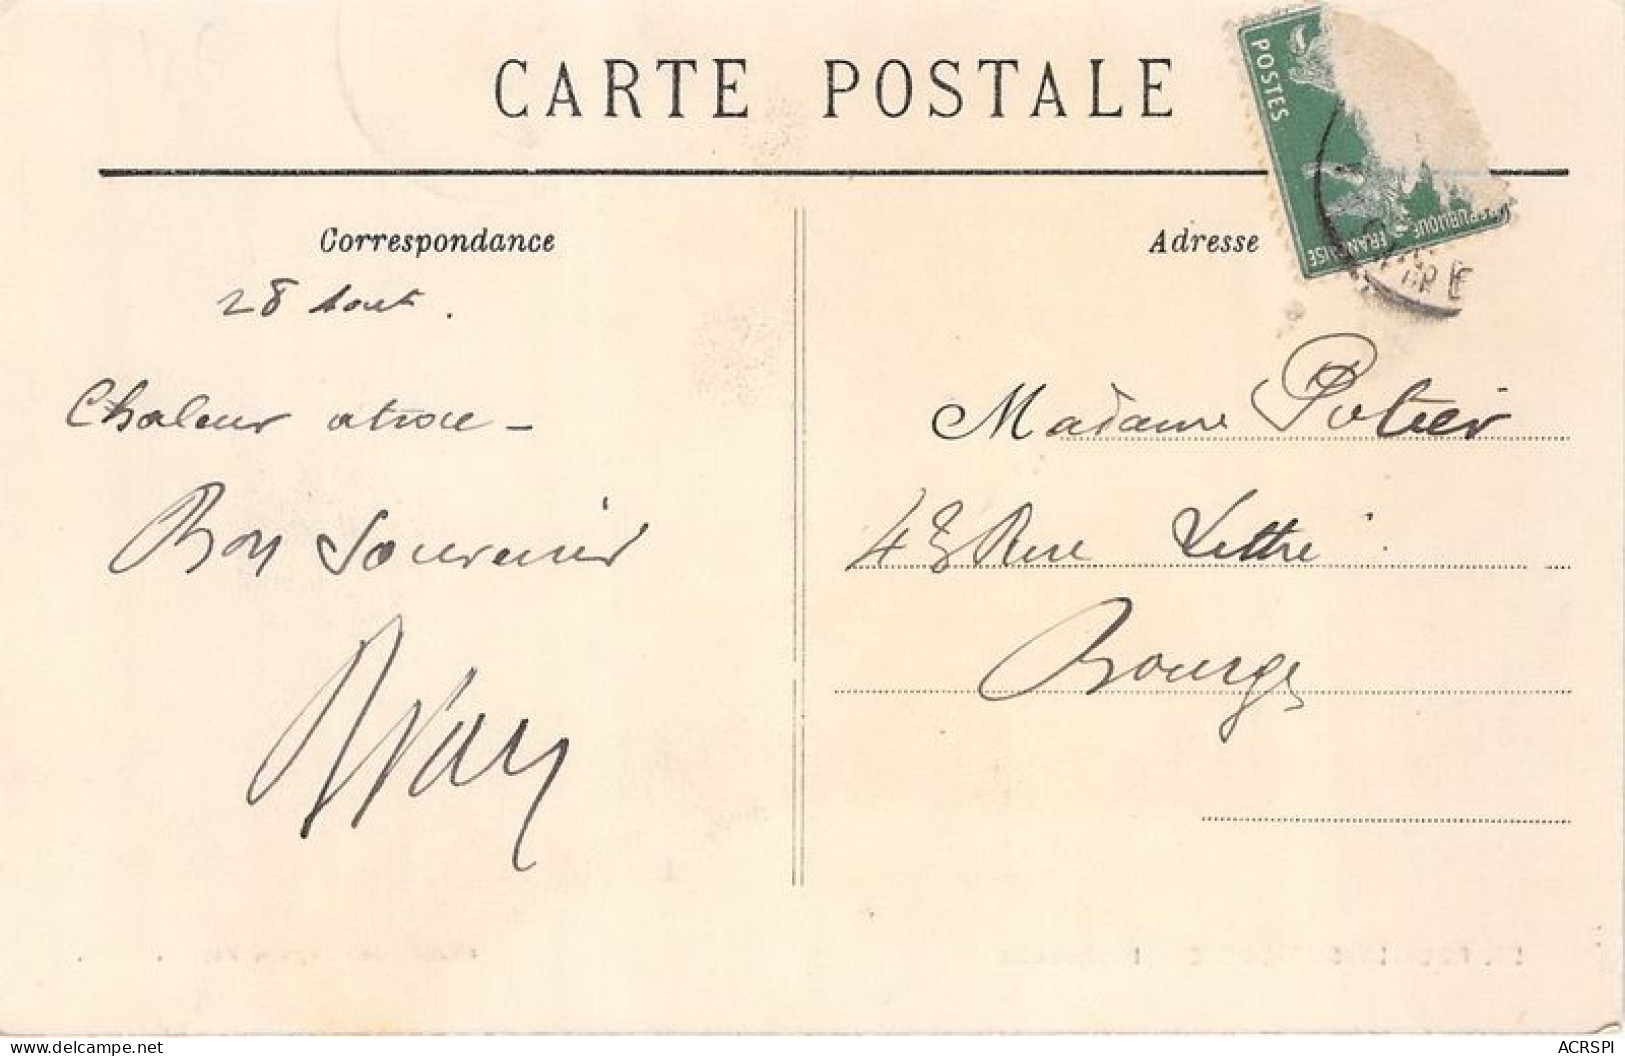 CARTE POSTALE
POSTES
REPUBLIQUE
FRANÇAISE
Correspondance
28 Aout.
Chaleur atroce -
Bon Souvenir
Adresse
Madame Potier
48 Rue Littré
Bourges
delcampe.net
ACRSPI